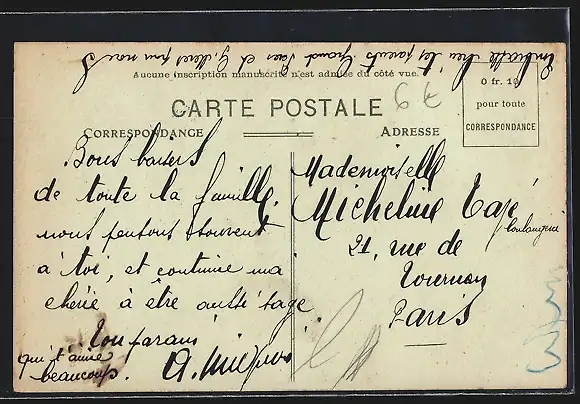 Embrasse bien les parents Grand
Aucune inscription manuscrite n'est admise du côté vue.
CARTE POSTALE
6 €
0 fr. 10
pour toute
CORRESPONDANCE
CORRESPONDANCE
ADRESSE
Bons baisers
de toute la famille,
nous pensons souvent
à toi, et continue ma
chérie à être aussi sage.
Ton parain
qui t'aime
beaucoup.
Mademoiselle
Micheline
boulangerie
21, rue de
Tournon
Paris